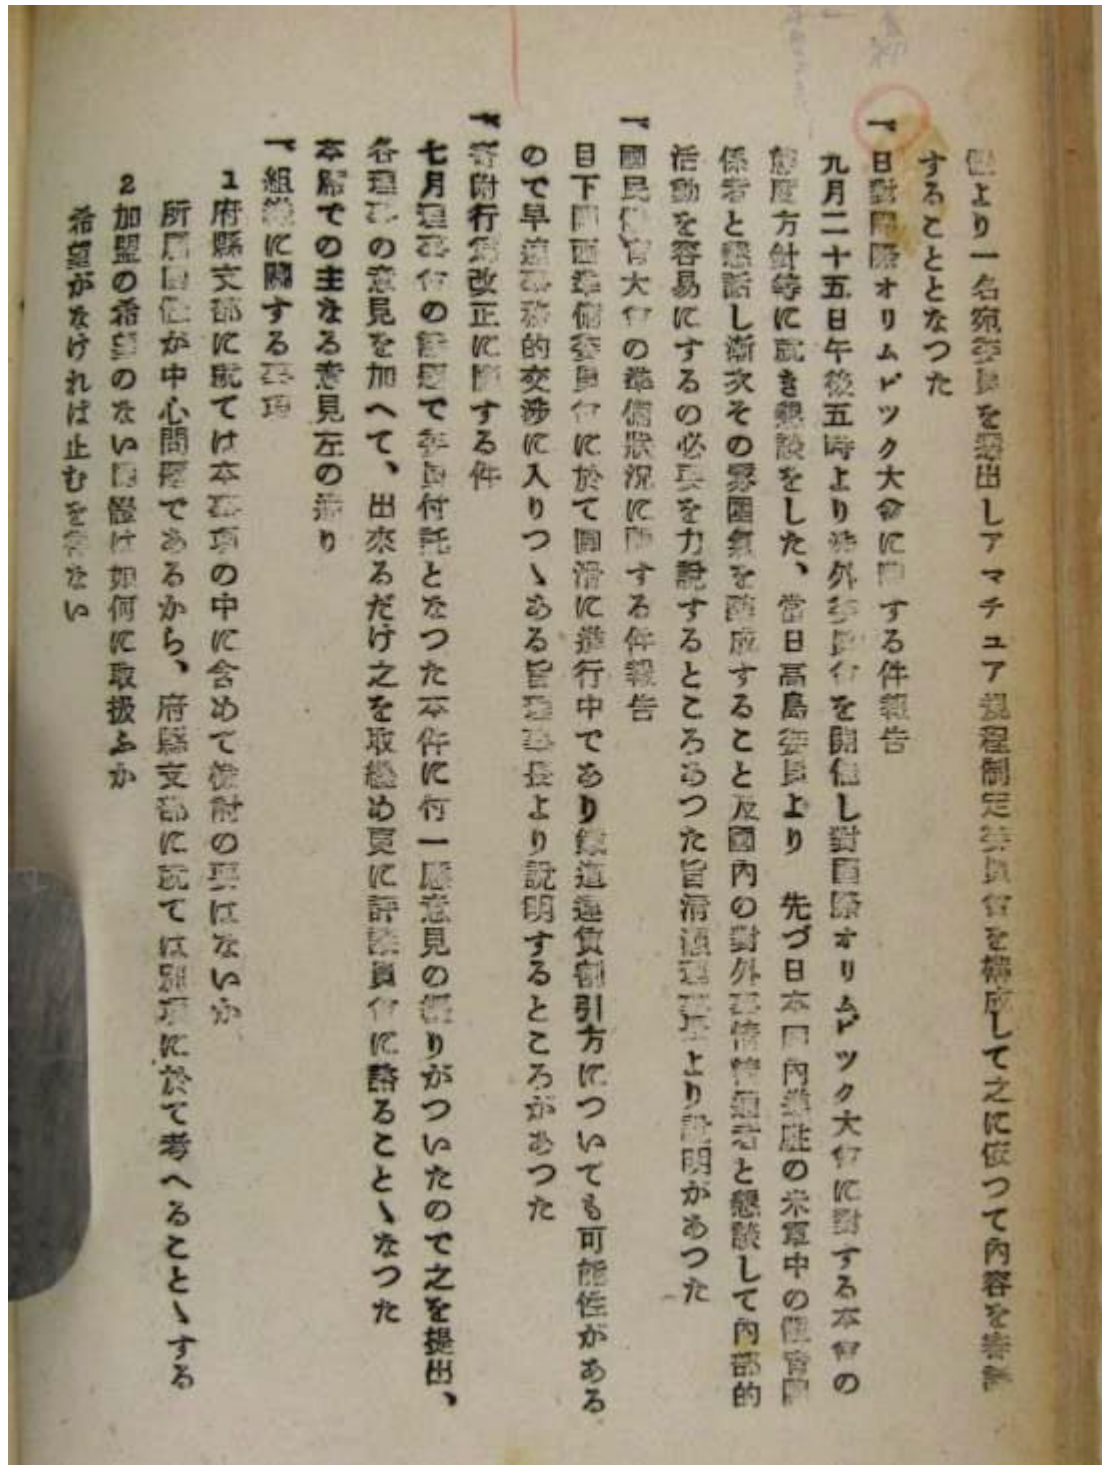 體より一名宛委員を選出しアマチュア規程制定委員會を構成して之に依つて內容を審議
することとなつた
一、日對國際オリムピック大會に關する件報告
九月二十五日午後五時より渉外委員會を開催し對國際オリムピック大會に對する本會の
態度方針等に就き懇談をした、當日髙島委員より 先づ日本國內進駐の米軍中の體育關
係者と懇話し漸次その雰圍氣を釀成すること及國內の對外事情精通者と懇談して內部的
活動を容易にするの必要を力說するところあつた旨清瀨理事長より說明があつた
一、國民體育大會の準備狀況に關する件報告
目下關西準備委員會に於て圓滑に進行中であり鐵道運賃割引方についても可能性がある
ので早速事務的交渉に入りつゝある旨理事長より說明するところがあつた
一、寄附行爲改正に關する件
七月理事會の議題で委員付託となつた本件に付一應意見の纒りがついたので之を提出、
各理事の意見を加へて、出來るだけ之を取纒め更に評議員會に諮ることゝなつた
本席での主なる意見左の通り
一、組織に關する事項
1 府縣支部に就ては本事項の中に含めて檢討の要はないか
所屬團體が中心問題であるから、府縣支部に就ては別項に於て考へることゝする
2 加盟の希望のない團體は如何に取扱ふか
希望がなければ止むを得ない